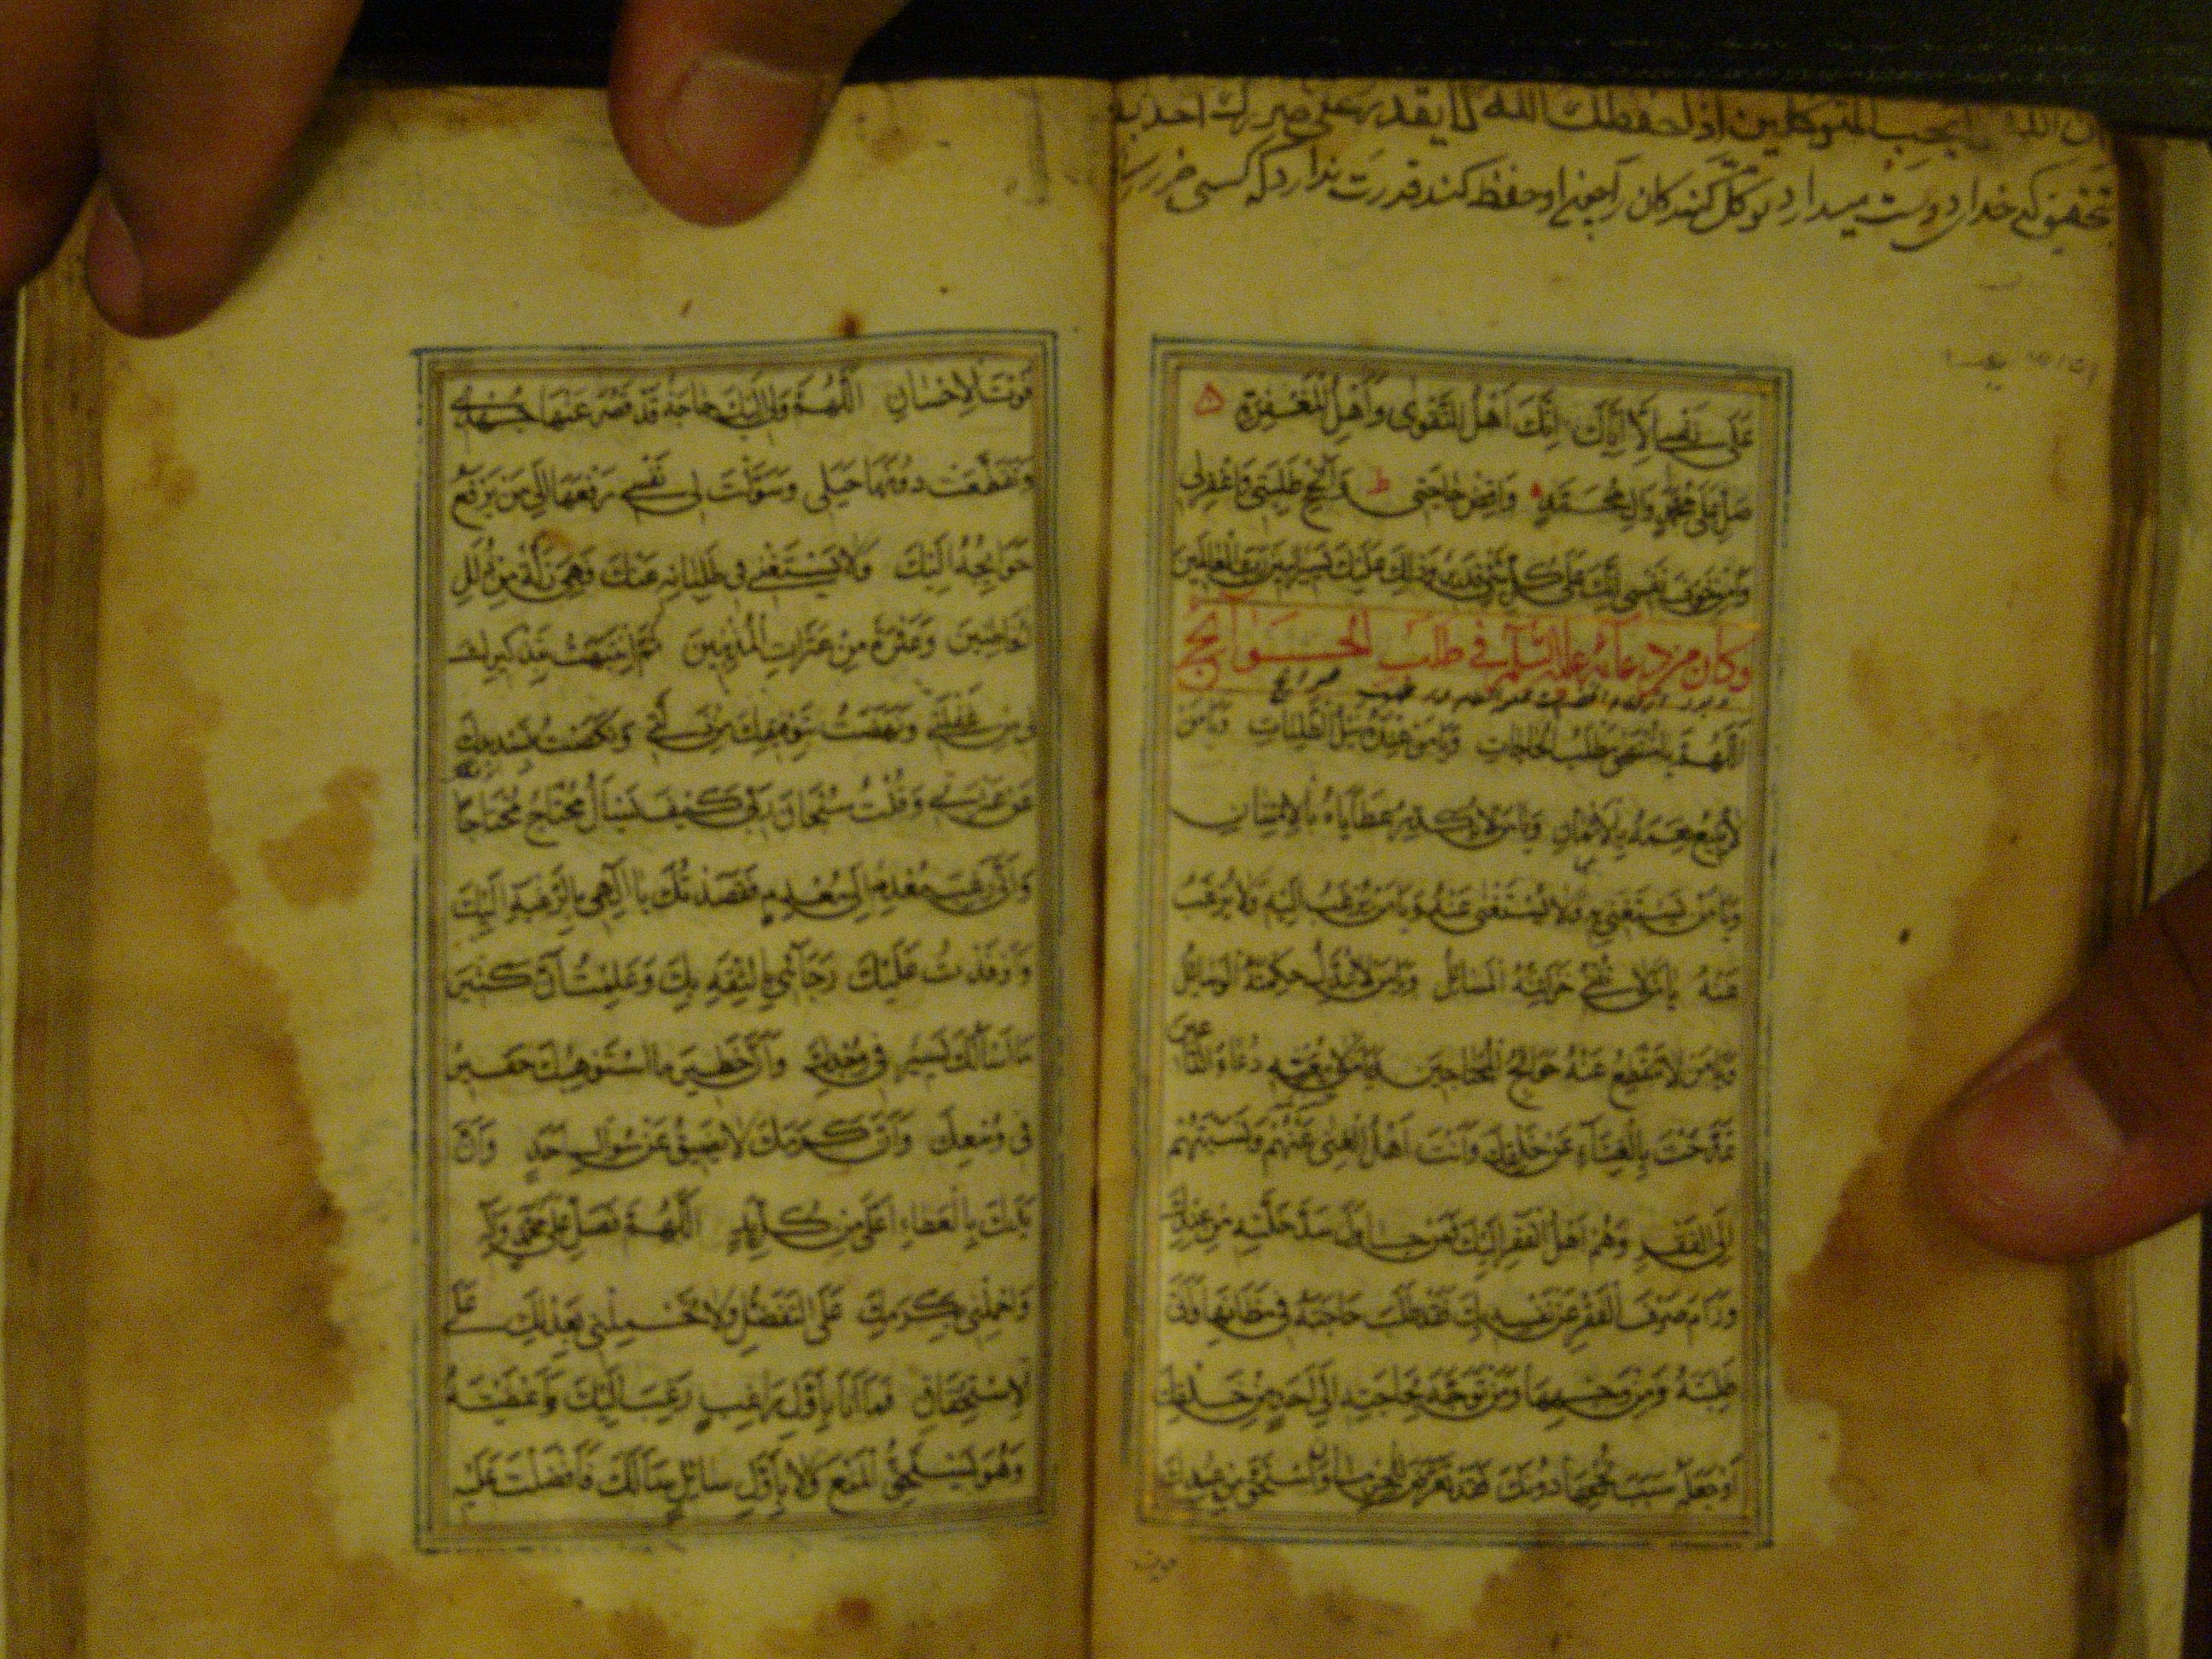 ان الله يحب المتوكلين اذا حفظك الله لا يقدر على ضرك احد به
تحقیق که خدا دوست میدارد توکل کنندکان را چون او حفظ کند قدرت ندارد که کسی ضرر
عَلى نَفسي اِلّا اِيّاكَ اِنَّكَ اَهْلُ التَّقوى وَاَهْلُ الْمَغْفِرَةِ
صَلِّ عَلى مُحَمَّدٍ وَالِ مُحَمَّدٍ وَاقْضِ حاجَتي وَاَنْجِحْ طَلِبَتي وَاغْفِرْلي
خَوفَ نَفْسي اِنَّكَ عَلى كُلِّ شَيءٍ قَديرٌ وَذلِكَ عَلَيْكَ يَسيرٌ امينَ رَبَّ الْعالَمينَ
وكان من دعائه عليه السلم في طلب الحوائج
اَللّهُمَّ يا مُنْتَهى مَطْلَبِ الْحاجاتِ وَيا مَنْ عِنْدَهُ نَيْلُ الطَّلِباتِ وَيا مَنْ
لا يَبيعُ نِعَمَهُ بِالْاَثْمانِ وَيا مَنْ لا يُكَدِّرُ عَطاياهُ بِالْاِمْتِنانِ
وَيا مَنْ يُسْتَغْنى بِهِ وَلا يُسْتَغْنى عَنْهُ وَيا مَنْ يُرْغَبُ اِلَيْهِ وَلا يُرْغَبُ
عَنْهُ يا مَنْ لا تُفْني خَزائِنَهُ الْمَسائِلُ وَيا مَنْ لا تُبَدِّلُ حِكْمَتَهُ الْوَسائِلُ
وَيا مَنْ لا تَنْقَطِعُ عَنْهُ حَوائِجُ الْمُحْتاجينَ وَيا مَنْ لا يُعَنّيهِ دُعاءُ الدّاعينَ
تَمَدَّحْتَ بِالْغَناءِ عَنْ خَلْقِكَ وَاَنْتَ اَهْلُ الْغِنى عَنْهُمْ وَنَسَبْتَهُمْ
اِلَى الْفَقْرِ وَهُمْ اَهْلُ الْفَقْرِ اِلَيْكَ فَمَنْ حاوَلَ سَدَّ خَلَّتِهِ مِنْ عِنْدِكَ
وَرامَ صَرْفَ الْفَقْرِ عَنْ نَفْسِهِ بِكَ فَقَدْ طَلَبَ حاجَتَهُ في مَظانِّها وَاَتى
طَلِبَتَهُ مِنْ وَجْهِها وَمَنْ تَوَجَّهَ بِحاجَتِهِ اِلى اَحَدٍ مِنْ خَلْقِكَ
اَوْ جَعَلَهُ سَبَبَ نُجْحِها دُونَكَ فَقَدْ تَعَرَّضَ لِلْحِرْمانِ وَاسْتَحَقَّ مِنْ عِنْدِكَ
فَوْتَ الْاِحْسانِ اَللّهُمَّ وَلي اِلَيْكَ حاجَةٌ قَدْ قَصَّرَ عَنْها جُهْدي
وَتَقَطَّعَتْ دُونَها حِيَلي وَسَوَّلَتْ لي نَفْسي رَفْعَها اِلى مَنْ يَرْفَعُ
حَوائِجَهُ اِلَيْكَ وَلا يَسْتَغْني في طَلِباتِهِ عَنْكَ وَهِيَ زَلَّةٌ مِنْ زَلَلِ
الْخاطِئينَ وَعَثْرَةٌ مِنْ عَثَراتِ الْمُذْنِبينَ ثُمَّ انْتَبَهْتُ بِتَذْكيرِكَ
لي مِنْ غَفْلَتي وَنَهَضْتُ بِتَوْفيقِكَ مِنْ زَلَّتي وَنَكَصْتُ بِتَسْديدِكَ
عَنْ عَثْرَتي وَقُلْتُ سُبْحانَ رَبّي كَيْفَ يَسْأَلُ مُحْتاجٌ مُحْتاجًا
وَاَنّى يَرْغَبُ مُعْدِمٌ اِلى مُعْدِمٍ فَقَصَدْتُكَ يا اِلهي بِالرَّغْبَةِ اِلَيْكَ
وَاَوْفَدْتُ عَلَيْكَ رَجائي بِالثِّقَةِ بِكَ وَعَلِمْتُ اَنَّ كَثيرَ
ما اَسْأَلُكَ يَسيرٌ في وُجْدِكَ وَاَنَّ خَطيرَ ما اَسْتَوْهِبُكَ حَقيرٌ
في وُسْعِكَ وَاَنَّ كَرَمَكَ لا يَضيقُ عَنْ سُؤالِ اَحَدٍ وَاَنَّ
يَدَكَ بِالْعَطاءِ اَعْلى مِنْ كُلِّ يَدٍ اَللّهُمَّ فَصَلِّ عَلى مُحَمَّدٍ وَالِهِ
وَاحْمِلْني بِكَرَمِكَ عَلَى التَّفَضُّلِ وَلا تَحْمِلْني بِعَدْلِكَ عَلَى
الْاِسْتِحْقاقِ فَما اَنَا بِاَوَّلِ راغِبٍ رَغِبَ اِلَيْكَ فَاَعْطَيْتَهُ
وَهُوَ يَسْتَحِقُّ الْمَنْعَ وَلا بِاَوَّلِ سائِلٍ سَأَلَكَ فَاَفْضَلْتَ عَلَيْهِ